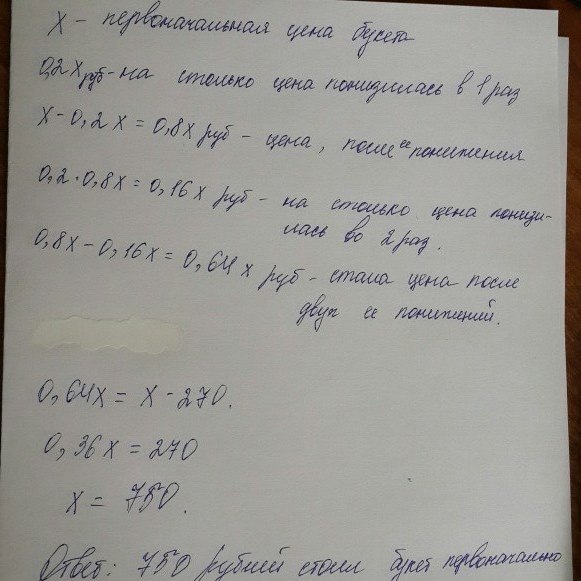 x - первоначальная цена букета
0,2x руб - на столько цена понизилась в 1 раз
x - 0,2x = 0,8x руб - цена, после ее понижения
0,2 · 0,8x = 0,16x руб - на столько цена понизи-
лась во 2 раз.
0,8x - 0,16x = 0,64x руб - стала цена после
двух ее понижений.
0,64x = x - 270.
0,36x = 270
x = 750.
Ответ: 750 рублей стоил букет первоначально